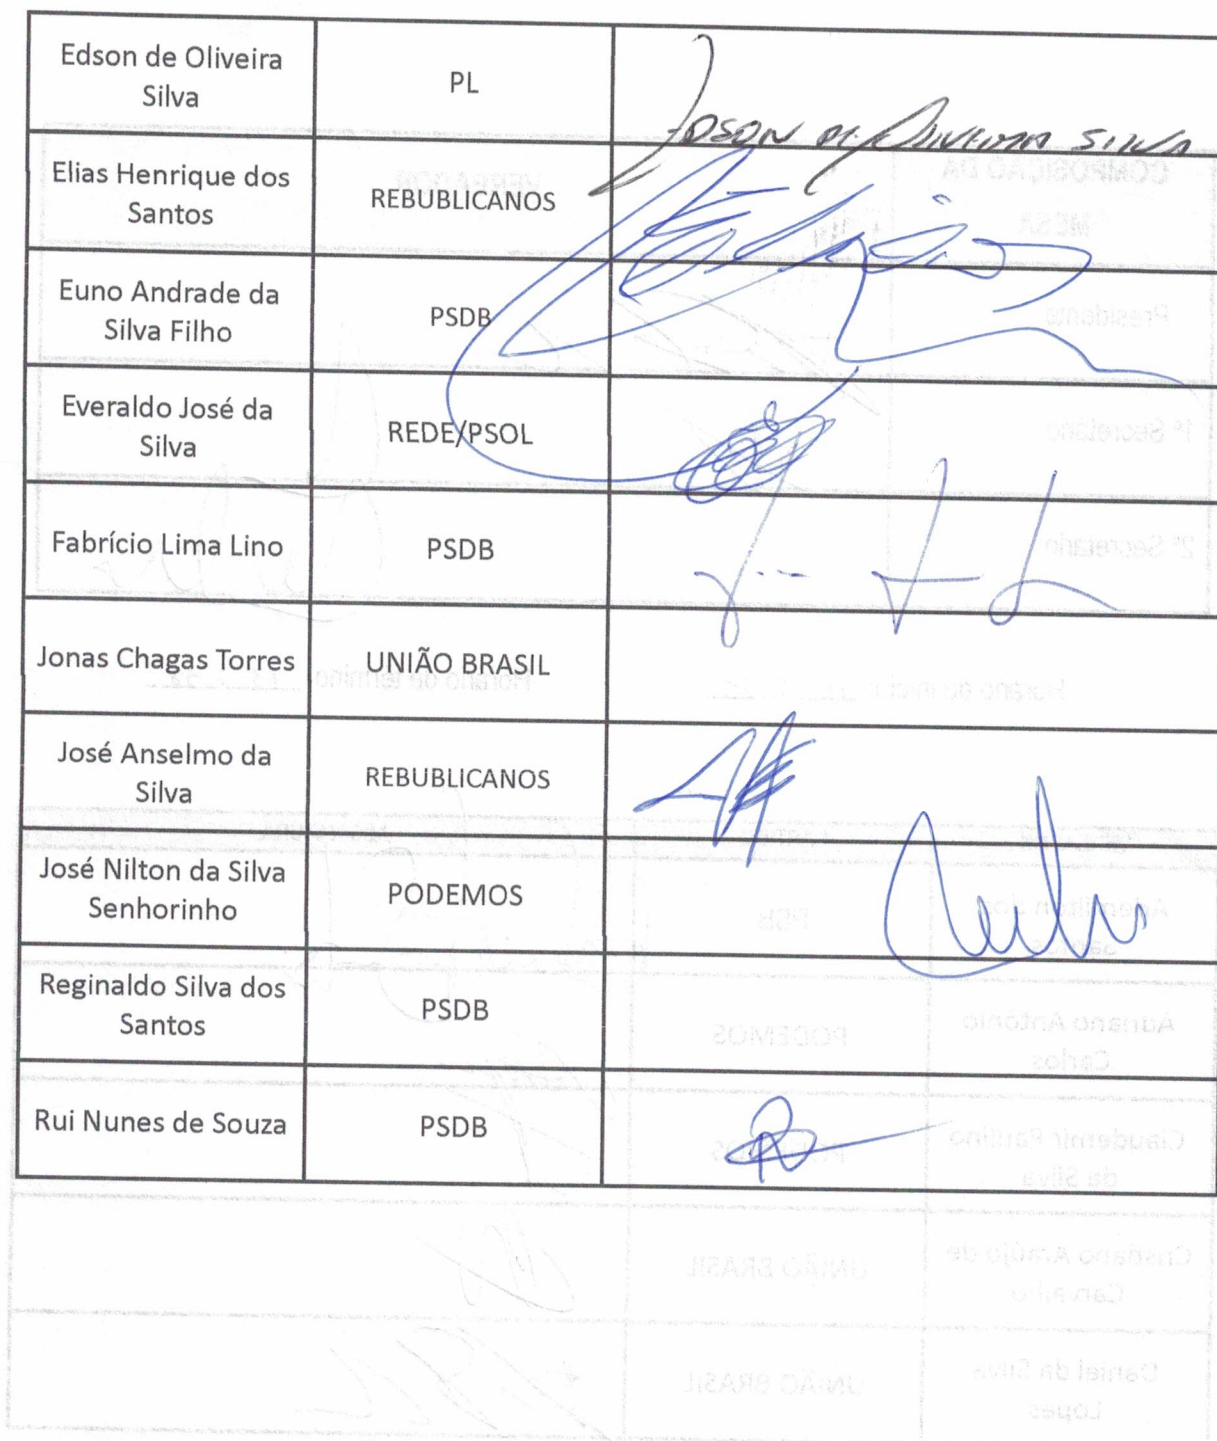 Edson de Oliveira
Silva
PL
EDSON DE OLIVEIRA SILVA
Elias Henrique dos
Santos
REBUBLICANOS
Euno Andrade da
Silva Filho
PSDB
Everaldo José da
Silva
REDE/PSOL
Fabrício Lima Lino
PSDB
Jonas Chagas Torres
UNIÃO BRASIL
José Anselmo da
Silva
REBUBLICANOS
José Nilton da Silva
Senhorinho
PODEMOS
Reginaldo Silva dos
Santos
PSDB
Rui Nunes de Souza
PSDB